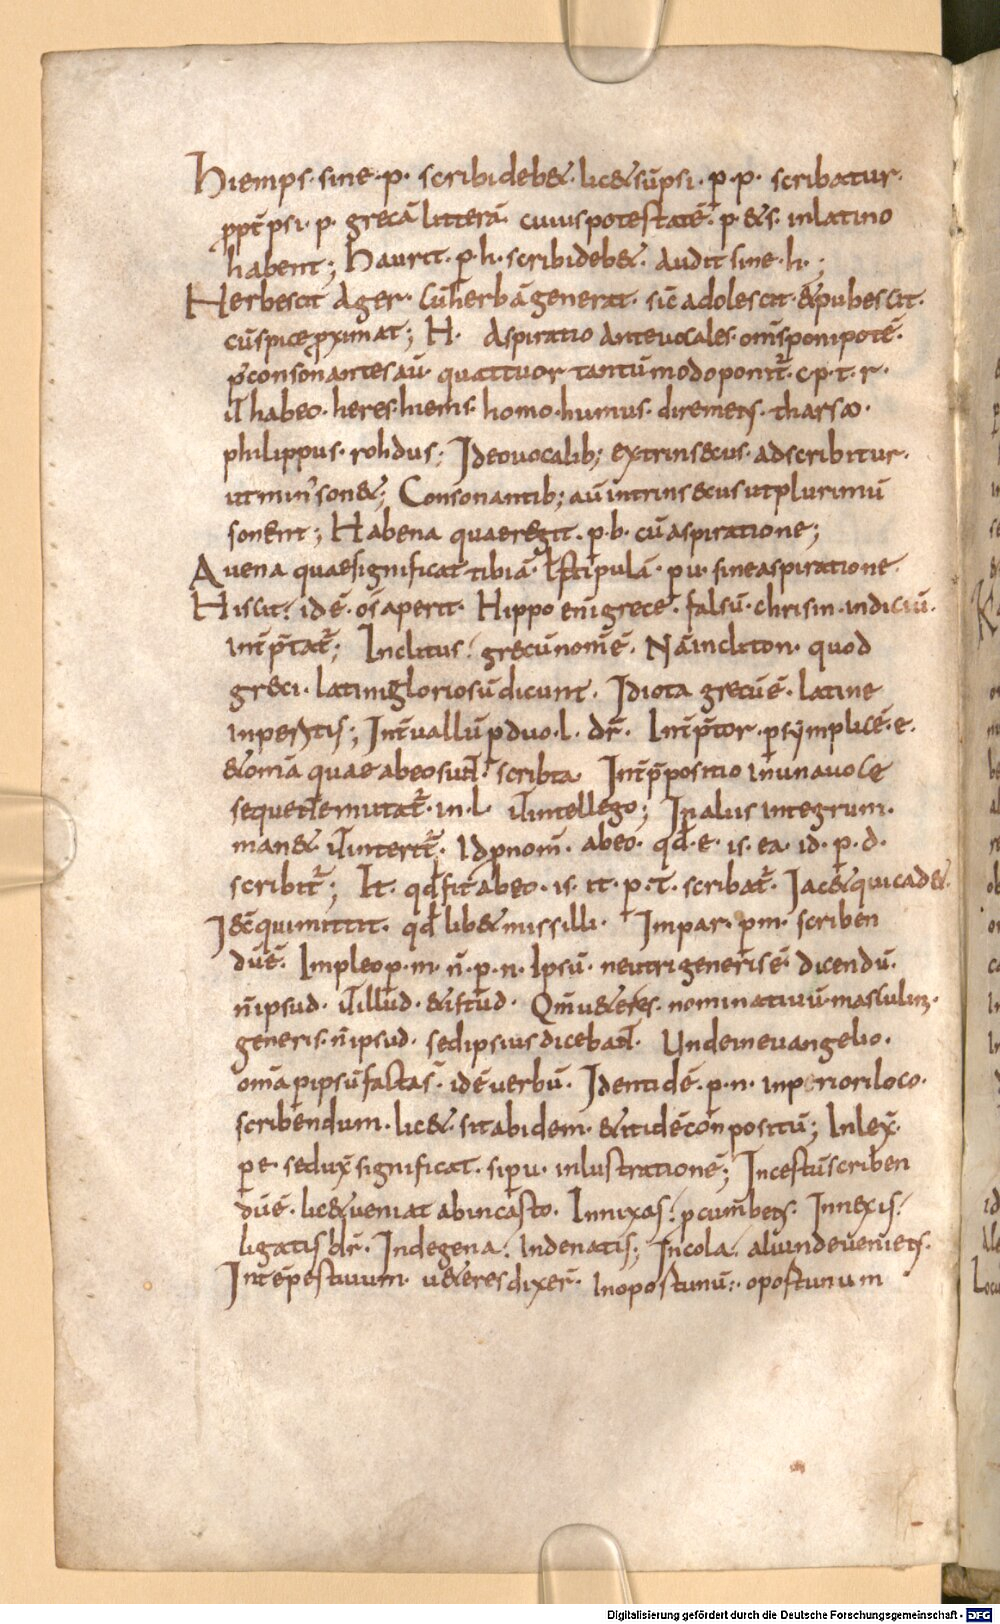 Hiemps· sine· p· scribi deb&· lic& sūpsi· p̱· p· scribatur·
ꝓpt̄ psi· p· grecā litterā· cuius potestatē· p· &s· in latino
habent; Haurit· p· h· scribi deb&· audit sine· h·;
Herbescit Ager· Cū herbā generat· sic̄ adolescit· & pubescit·
cū spice ꝓximat; H· Aspiratio ante vocales om̄s poni potē·
p̱ consonantes aū· quattuor tantū modo ponit̄· c· p· t· r·
ut̄ habeo· heres· hiems· homo· humus· diremens· tharso·
philippus· rohdus; Ideo vocalib; extrinsecus· adscribitur·
ut min' son&; Consonantib; aū intrinsecus ut plurimū
sonent; Habena quae regit· p· b· cū aspiratione;
Auena quae significat tibiā· ł stipulā· p u· sine aspiratione·
Hiscit· idē· os̄ aperit· Hippo enī grece· falsū· chrisin· indiciū·
int̄p̄tat̄; Inclitus· grecū nomē· Nā incliton· quod
greci· latini gloriosū dicunt· Idiota grecū ē· latine
inperitis; Int̄uallū p duo· l· dr̄· Int̄p̄tor· p simplicē· e·
& om̄a quae ab eo sunt̄ scribta· Int̄ p̄positio in unā uoce
sequente mutat̄· in· l· ut̄ intellego; In aliis integrum·
man& ut̄ intert̄· Id ꝓnom̄· ab eo· qđ· e· is· ea· id· p· d·
scribit̄; It· qđ fit ab eo· is· it· p· T· scribat̄· Iac& qui cad&·
Iec̄ qui mittit· qđ lib& missilli· Impar· p m· scriben
dū ē· Impleo p· m· n̄· p· n· Ipsū· neutri generis ē· dicendū·
n̄ ipsud· ut̄ illud· & istud· Qm̄ u&eres· nominatiuū masculini·
generis· n̄ ipsud· sed ipsius dicebant̄· Unde in euangelio·
om̄a p ipsū facta s̄· id ē uerbū· Identidē· p· n· in priori loco·
scribendum· lic& sit ab idem· & itidē conpositū; Inlex·
p e· sedux significat· si p u· inlustrationē; Incestū scriben
dū ē· lic& ueniat ab in casto· Innixas· p cumbens· Innexis·
ligatis dr̄· Indegena· inde natis; Incola· aliunde ueniens·
Intēpestiuum· u&eres dixer̄· inopostunū· opostunum
Digitalisierung gefördert durch die Deutsche Forschungsgemeinschaft - DFG